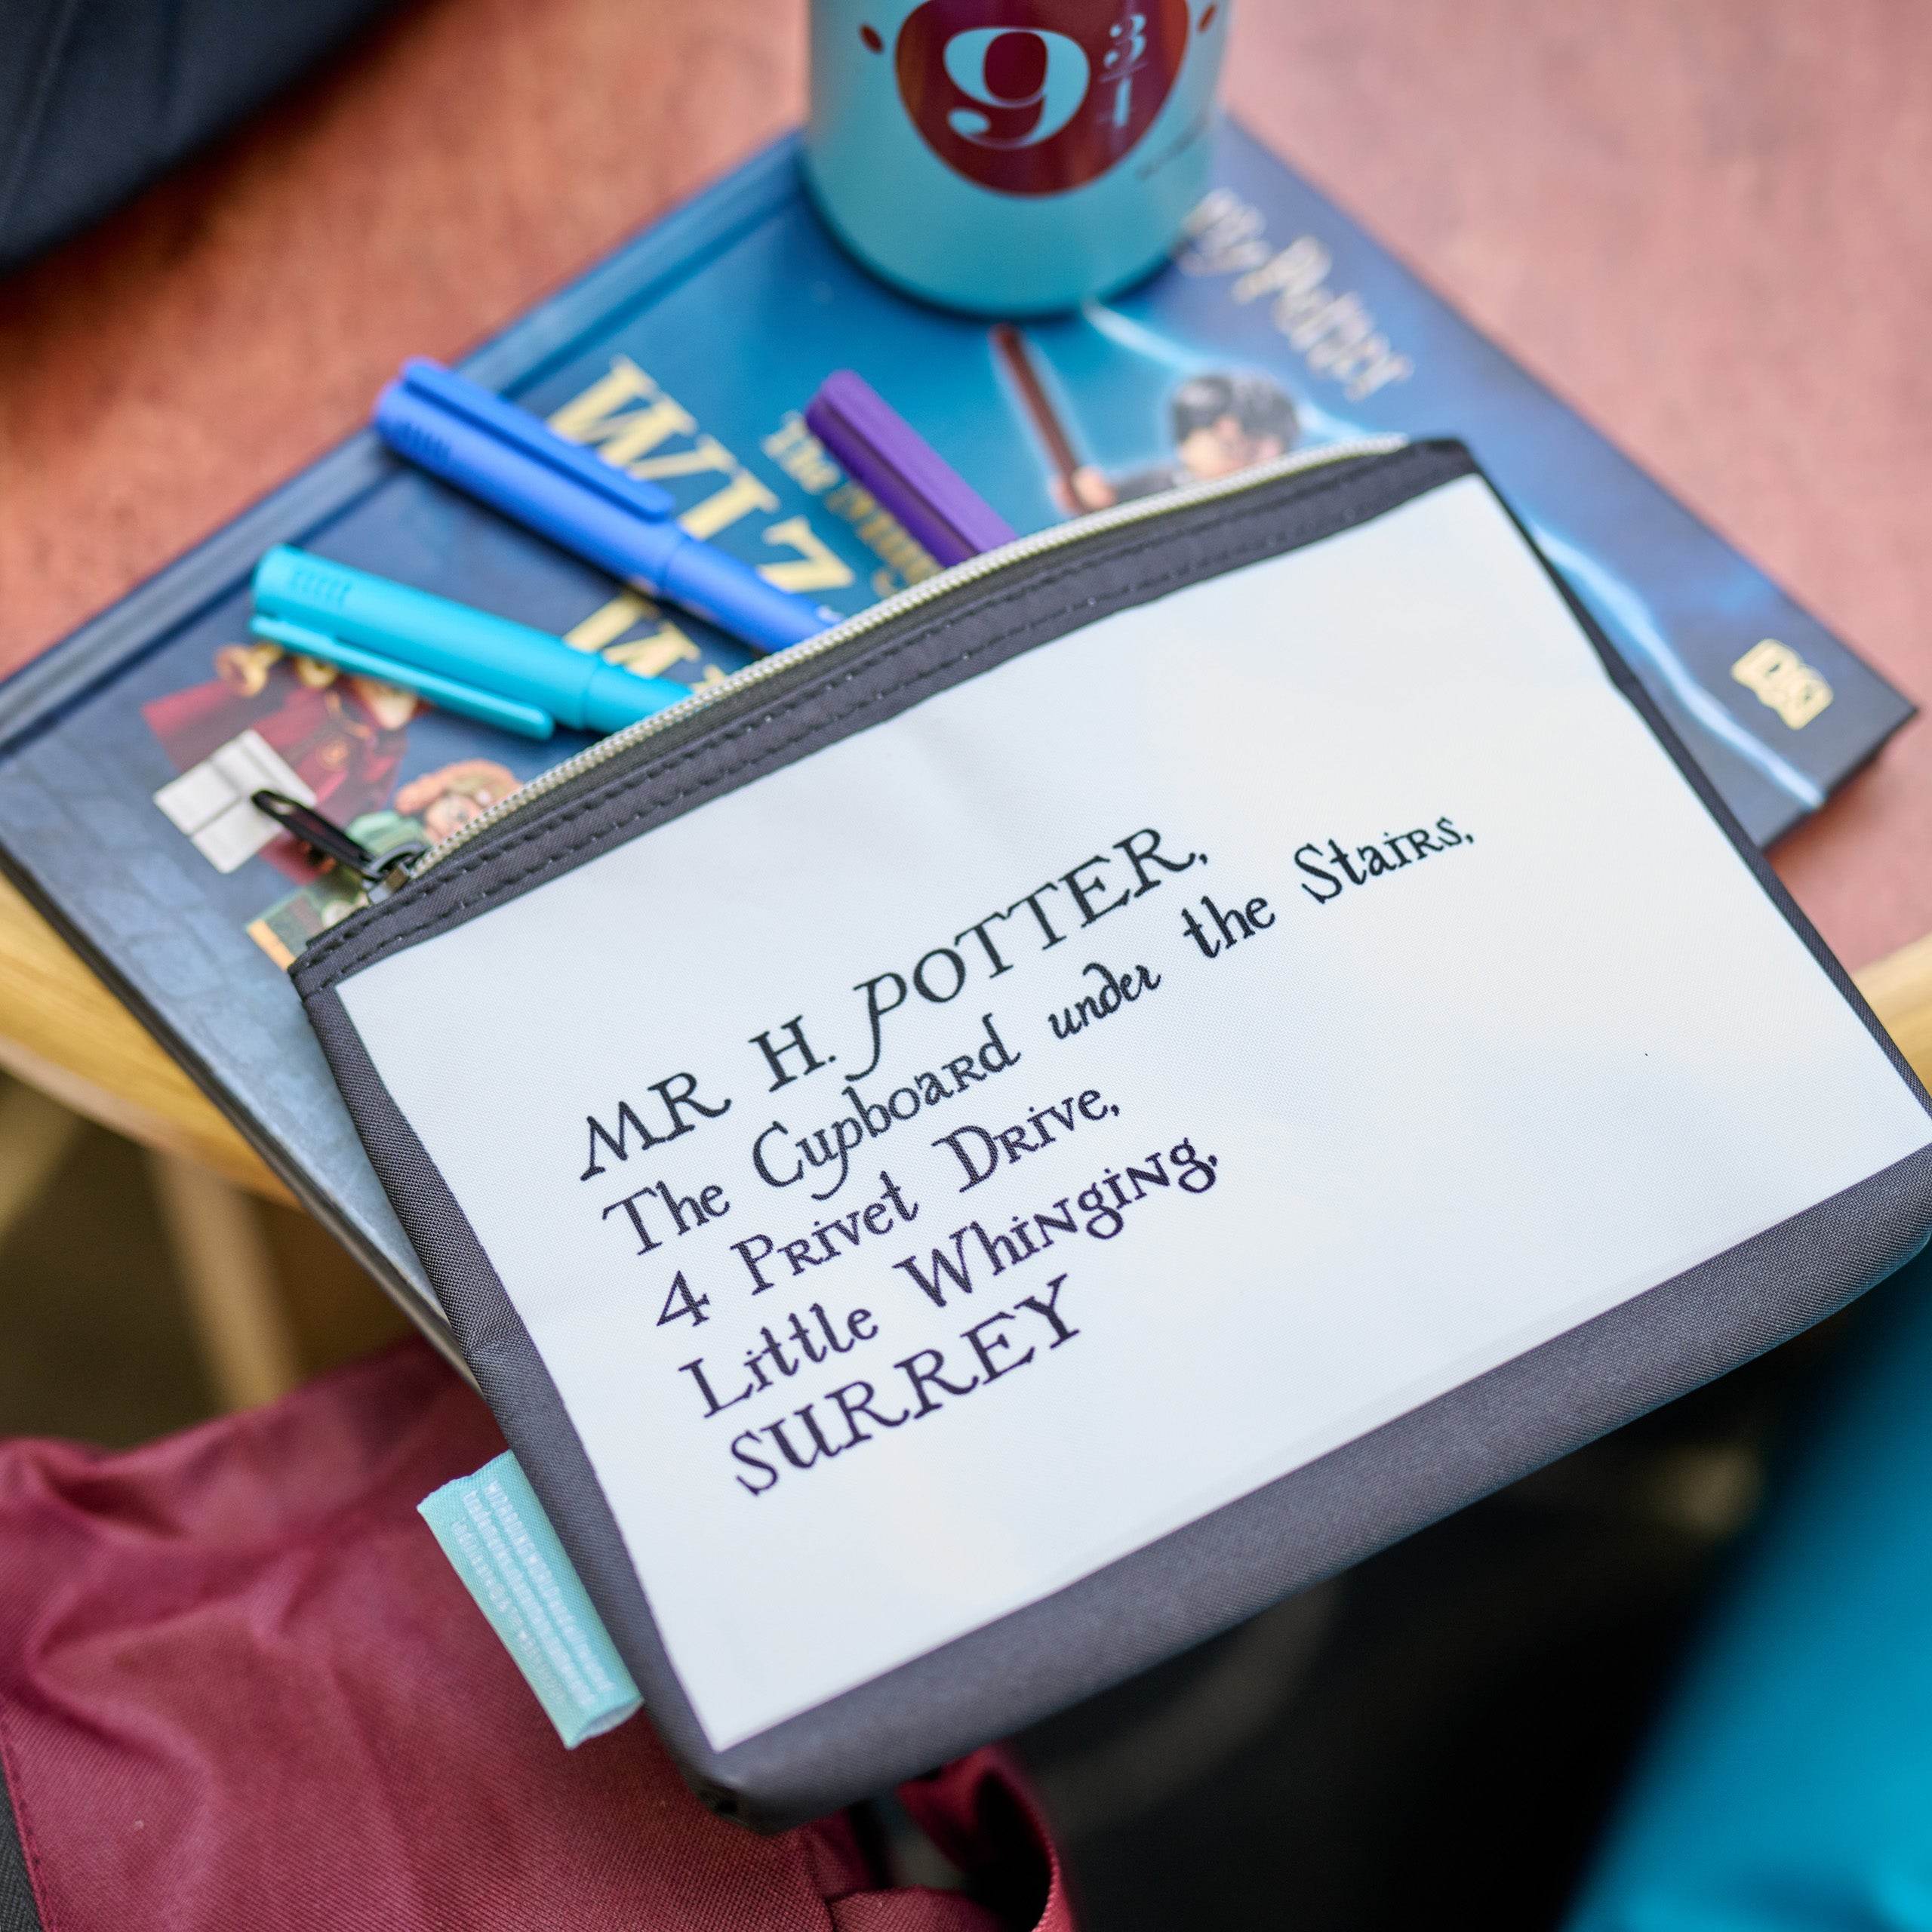 9 3/
Potter
WIZ
The
MR H. POTTER,
The Cupboard under the Stairs,
4 Privet Drive,
Little Whinging,
SURREY